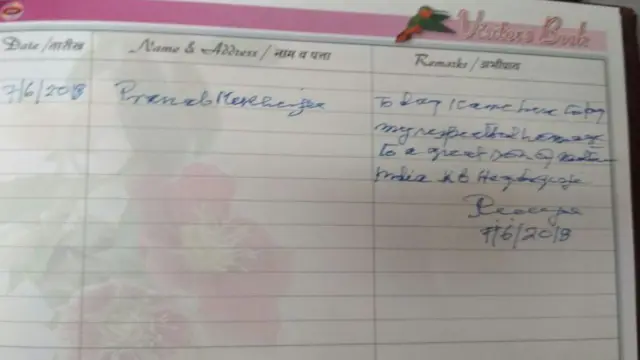 Visitors Book
Date / तारीख Name & Address / नाम व पत्ता Remarks / अभीप्राय
7/6/2018 Pranab Mukherjee Today I came here to pay
my respect and homage
to a great son of
India K B Hedgewar
7/6/2018